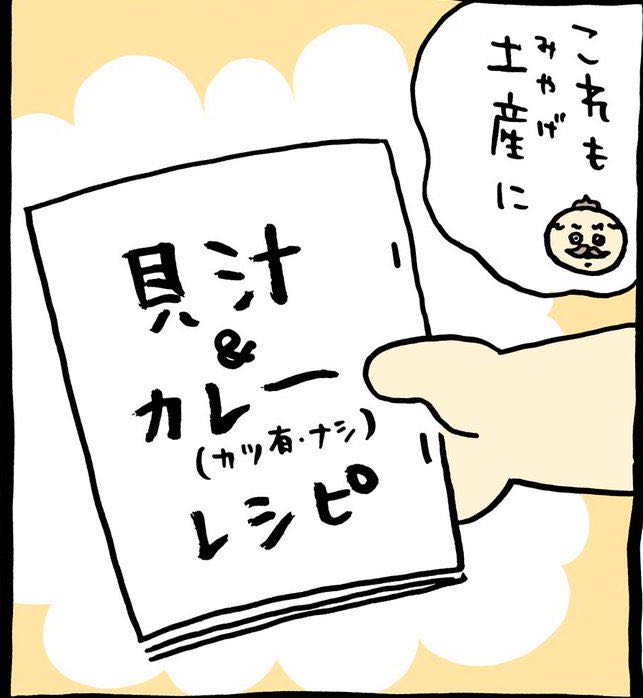 これも
土産に
みやげ
貝汁
&
カレー
(カツ有・ナシ)
レシピ